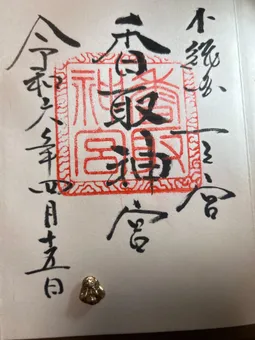 下総国一之宮
香取神宮
香取神宮
令和六年四月十五日